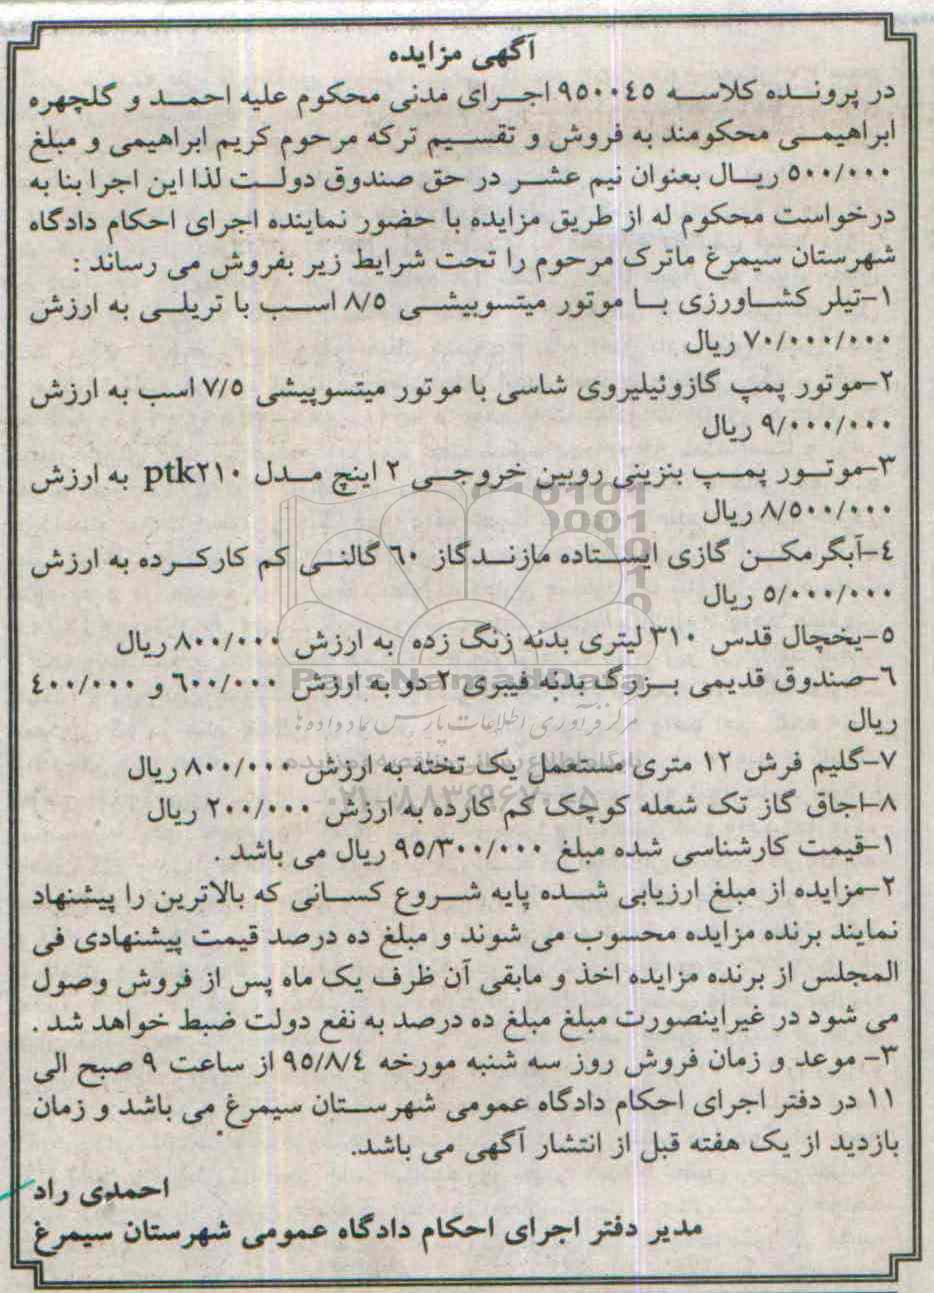 آگهی مزایده
در پرونده کلاسه ۹۵۰۰۴۵ اجرای مدنی محکوم علیه احمد و گلچهره
ابراهیمی محکومند به فروش و تقسیم ترکه مرحوم کریم ابراهیمی و مبلغ
۵۰۰/۰۰۰ ریال بعنوان نیم عشر در حق صندوق دولت لذا این اجرا بنا به
درخواست محکوم له از طریق مزایده با حضور نماینده اجرای احکام دادگاه
شهرستان سیمرغ ماترک مرحوم را تحت شرایط زیر بفروش می رساند :
۱-تیلر کشاورزی با موتور میتسوبیشی ۸/۵ اسب با تریلی به ارزش
۷۰/۰۰۰/۰۰۰ ریال
۲-موتور پمپ گازوئیلیروی شاسی با موتور میتسوپیشی ۷/۵ اسب به ارزش
۹/۰۰۰/۰۰۰ ریال
۳-موتور پمپ بنزینی روبین خروجی ۲ اینچ مدل ptk۲۱۰ به ارزش
۸/۵۰۰/۰۰۰ ریال
۴-آبگرمکن گازی ایستاده مازندگاز ۶۰ گالنی کم کارکرده به ارزش
۵/۰۰۰/۰۰۰ ریال
۵-یخچال قدس ۳۱۰ لیتری بدنه زنگ زده به ارزش ۸۰۰/۰۰۰ ریال
ParsNamadData
۶-صندوق قدیمی بزرگ بدنه فیبری ۲ دو به ارزش ۶۰۰/۰۰۰ و ۴۰۰/۰۰۰
ریال
مرکز فرآوری اطلاعات پارس نماد داده ها
۷-گلیم فرش ۱۲ متری مستعمل یک تخته به ارزش ۸۰۰/۰۰۰ ریال
۸-اجاق گاز تک شعله کوچک کم کارده به ارزش ۲۰۰/۰۰۰ ریال
۱-قیمت کارشناسی شده مبلغ ۹۵/۳۰۰/۰۰۰ ریال می باشد .
۲-مزایده از مبلغ ارزیابی شده پایه شروع کسانی که بالاترین را پیشنهاد
نمایند برنده مزایده محسوب می شوند و مبلغ ده درصد قیمت پیشنهادی فی
المجلس از برنده مزایده اخذ و مابقی آن ظرف یک ماه پس از فروش وصول
می شود در غیراینصورت مبلغ مبلغ ده درصد به نفع دولت ضبط خواهد شد .
۳- موعد و زمان فروش روز سه شنبه مورخه ۹۵/۸/۴ از ساعت ۹ صبح الی
۱۱ در دفتر اجرای احکام دادگاه عمومی شهرستان سیمرغ می باشد و زمان
بازدید از یک هفته قبل از انتشار آگهی می باشد.
احمدی راد
مدیر دفتر اجرای احکام دادگاه عمومی شهرستان سیمرغ